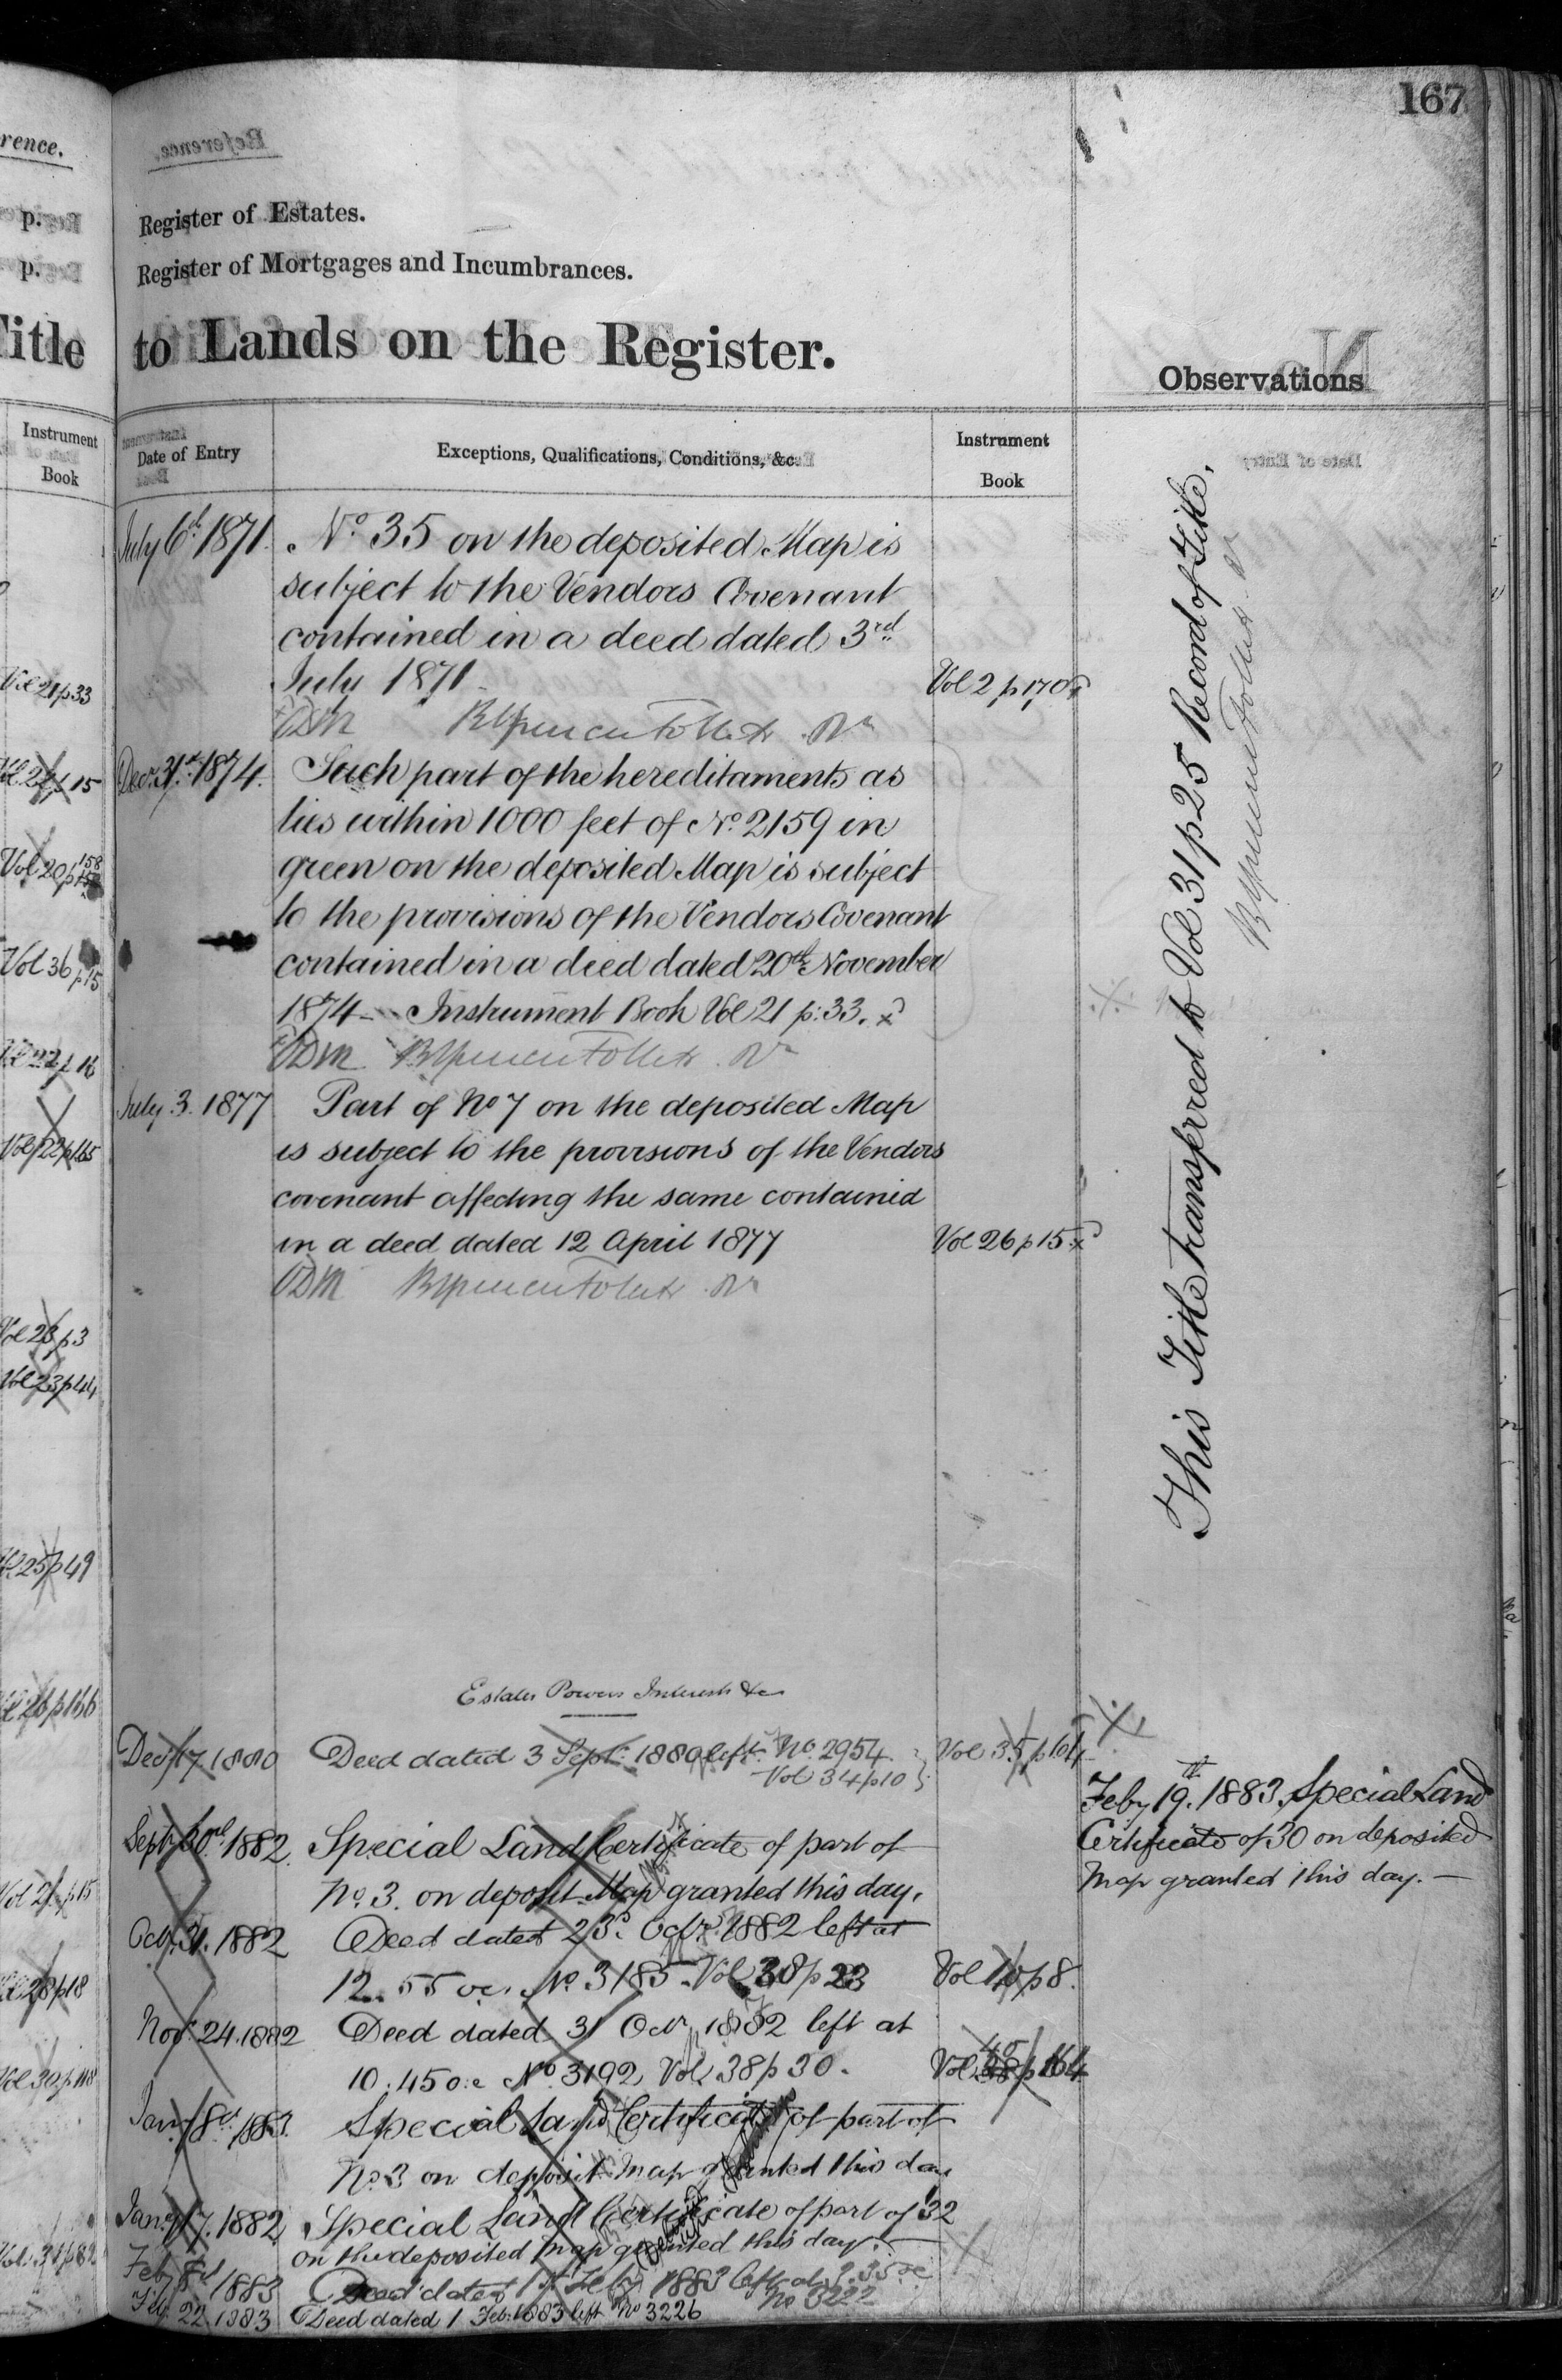 167
Register of Estates.
Register of Mortgages and Incumbrances.
to Lands on the Register.
Observations
Date of Entry
Exceptions, Qualifications, Conditions, &c.
Instrument
Book
July 6th 1871. No 35 on the deposited Map is
subject to the Vendors Covenant
contained in a deed dated 3rd
July 1871 Vol 2 p 170
Decr 31st 1874. Such part of the hereditaments as
lies within 1000 feet of No 2159 in
green on the deposited Map is subject
to the provisions of the Vendors Covenant
contained in a deed dated 20th November
1874 – Instrument Book Vol 21 p: 33. x
July 3. 1877 Part of No 7 on the deposited Map
is subject to the provisions of the Vendors
covenant affecting the same contained
in a deed dated 12 April 1877 Vol 26 p 15 x
This Title transferred to Vol 31 p 25 Record of Title.
Estates Powers Interests &c
Dec 17. 1880 Deed dated 3 Sept. 1880 left No. 2954.
Vol 34 p 10
Vol 35 p 161
Sept 30th 1882. Special Land Certificate of part of
No. 3. on deposit Map granted this day.
Oct. 31. 1882 Deed dated 23d Octr. 1882 left at
12. 55 oc. No. 3185. Vol 38 p 23 Vol 10 p 8.
Novr 24. 1882 Deed dated 31 Octr 1882 left at
10. 45 o.c No. 3192 Vol 38 p 30. Vol p 164
Jany 8th 1883. Special Land Certificate of part of
No. 3 on deposit map granted this day
Jany 17. 1882 Special Land Certificate of part of 32
on the deposited map granted this day.
Feby 8th 1883 Deed dated 1st Feby 1883 left at 2.35 oc
No 3222
Feby 22. 1883 Deed dated 1 Feb: 1883 left No 3226
Feby 19th. 1883. Special Land
Certificate of 30 on deposited
Map granted this day. —
rence.
p.
p.
Title
Instrument
Book
Vol 21 p 33
Vol 36 p 15
Vol 22 p 165
Vol 23 p 3
Vol 23 p 44
25 p 49
26 p 166
28 p 18
Vol 30 p 118